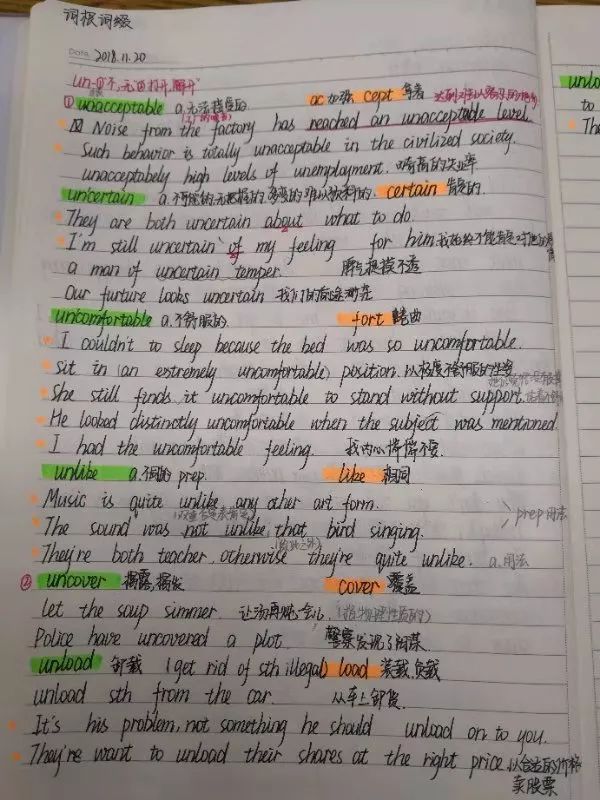 词根词缀
Date 2018.11.20
un-①不,无 ②打开,解开
① unacceptable a.无法接受的 ac 加强 cept 拿着
Noise from the factory has reached an unacceptable level.
Such behavior is totally unacceptable in the civilized society.
unacceptabely high levels of unemployment. 高的失业率
uncertain a.不确定的,无把握的,多变的,难以预料的. certain 肯定的
They are both uncertain about what to do.
I'm still uncertain of my feeling for him
a man of uncertain temper. 脾气捉摸不透
Our furture looks uncertain 我们的前途渺茫
uncomfortable a.不舒服的. fort
I couldn't to sleep because the bed was so uncomfortable.
sit in (an estremely uncomfortable) position. 以极度不舒服的坐姿
She still finds it uncomfortable to stand without support.
He looked distinctly uncomfortable when the subject was mentioned.
I had the uncomfortable feeling. 我内心惴惴不安.
unlike a.不同的 prep. like 相同
Music is quite unlike any other art form.
The sound was not unlike that bird singing. prep 用法
They're both teacher, otherwise they're quite unlike. a.用法
② uncover 揭露,揭发 cover 覆盖
let the soup simmer. 让汤再炖一会儿.
Police have uncovered a plot. 警察发现了阴谋.
unload 卸载 (get rid of sth illegal) load 装载,负载
unload sth from the car. 从车上卸货
It's his problem, not something he should unload on to you.
They're want to unload their shares at the right price. 以合适的价格
卖股票
unlo
to
The